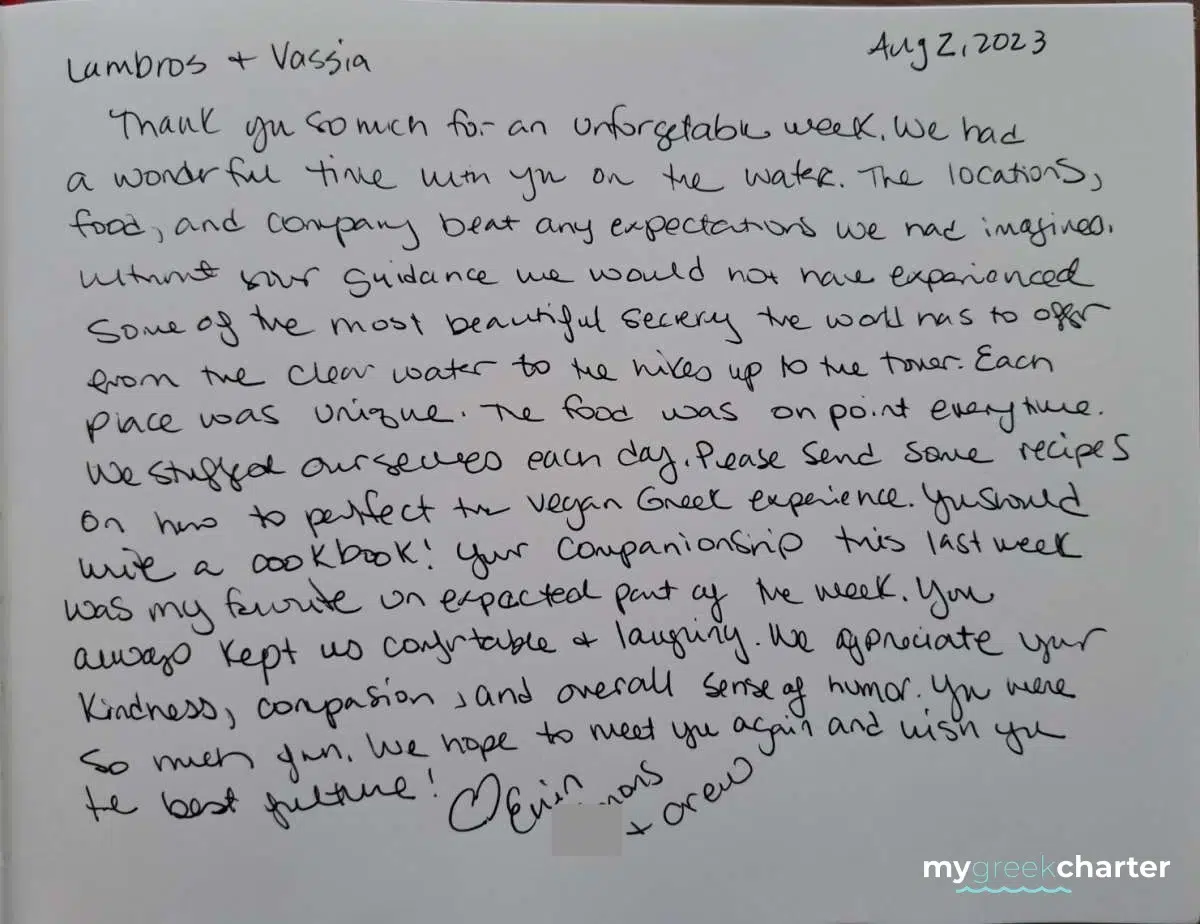 Lambros + Vassia
Aug 2, 2023
Thank you so much for an unforgetable week. We had
a wonderful time with you on the water. The locations,
food, and company beat any expectations we had imagined.
Without your guidance we would not have experienced
Some of the most beautiful secnery the world has to offer
from the clear water to the hikes up to the tower. Each
place was unique. The food was on point every time.
We stuffed ourselves each day. Please send some recipes
on how to perfect the vegan Greek experience. You should
write a cookbook! Your companionship this last week
was my favorite unexpected part of the week. You
always kept us comfortable + laughing. We appreciate your
Kindness, compasion, and overall sense of humor. You were
So much fun. We hope to meet you again and wish you
the best future! ♡ Erin
+ Drew
mygreekcharter